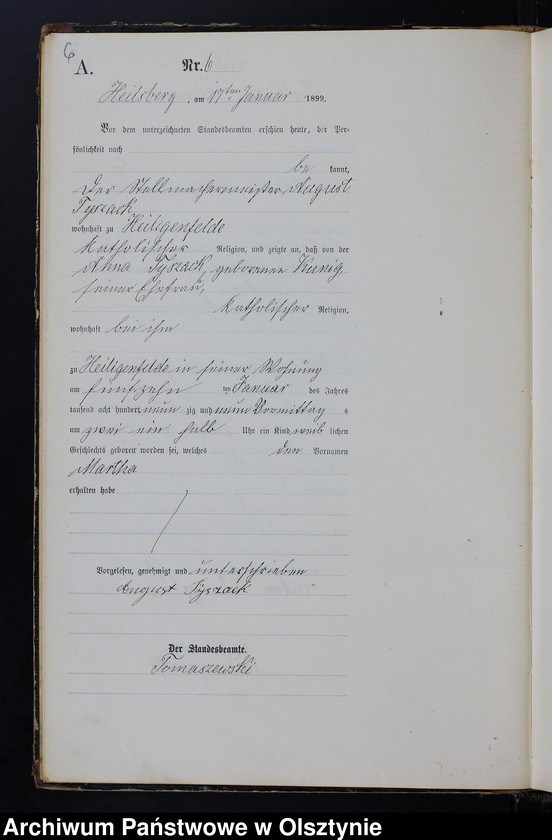 6
A.
Nr. 6
Heilsberg, am 17ten Januar 1899.
Vor dem unterzeichneten Standesbeamten erschien heute, der Per-
sönlichkeit nach
be kannt,
der Stellmachermeister August
Tyszack
wohnhaft zu Heiligenfelde
katholischer Religion, und zeigte an, daß von der
Anna Tyszack, geborenen Kunig
seiner Ehefrau,
katholischer Religion,
wohnhaft bei ihm
zu Heiligenfelde in seiner Wohnung
am fünfzehn ten Januar des Jahres
tausend acht hundert neun zig und neun Vormittag s
um zwei ein halb Uhr ein Kind weib lichen
Geschlechts geboren worden sei, welches den Vornamen
Martha
erhalten habe
Vorgelesen, genehmigt und unterschrieben
August Tyszack
Der Standesbeamte.
Tomaszewski
Archiwum Państwowe w Olsztynie